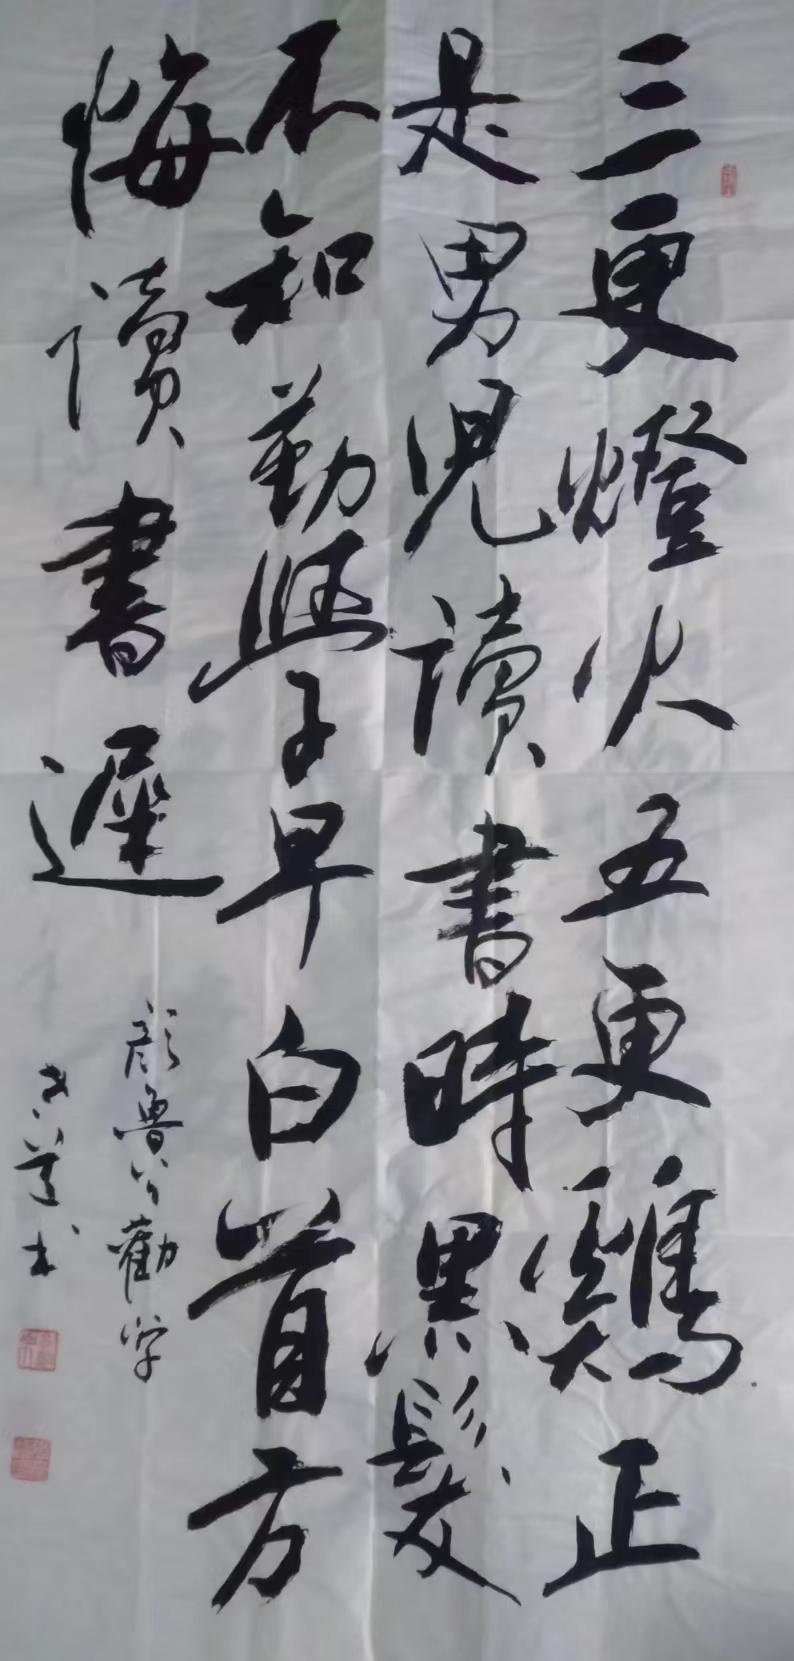 三更燈火五更鷄正
是男兒讀書時黑髮
不知勤學早白首方
悔讀書遲
顏魯公勸学